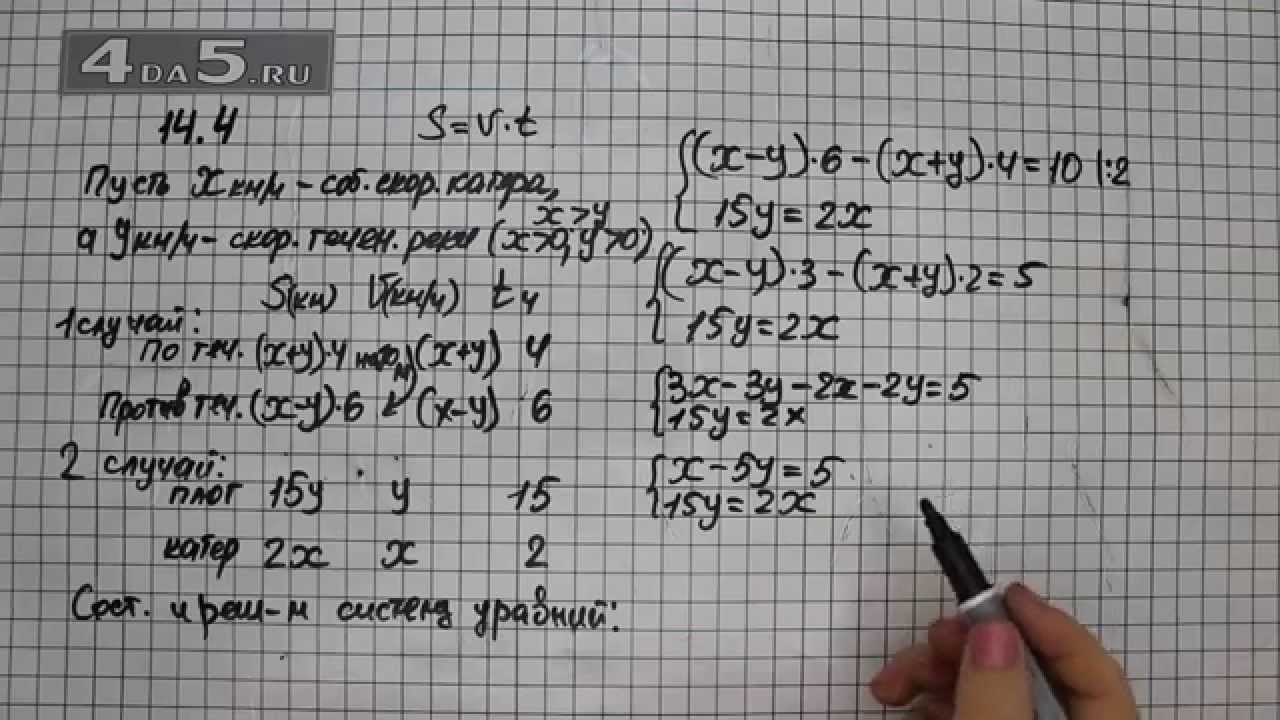 4DA5.RU
14.4
S=V·t
Пусть X км/ч – соб. скор. катера,
x>y
а y км/ч – скор. течен. реки (x>0, y>0)
S(км) V(км/ч) t ч
1 случай:
по теч. (x+y)·4 (x+y) 4
Против теч. (x–y)·6 (x–y) 6
2 случай:
плот 15y y 15
катер 2x x 2
Сост. и реш–м систему уравний:
(x–y)·6 – (x+y)·4 = 10 |:2
15y = 2x
(x–y)·3 – (x+y)·2 = 5
15y = 2x
3x – 3y – 2x – 2y = 5
15y = 2x
x – 5y = 5
15y = 2x